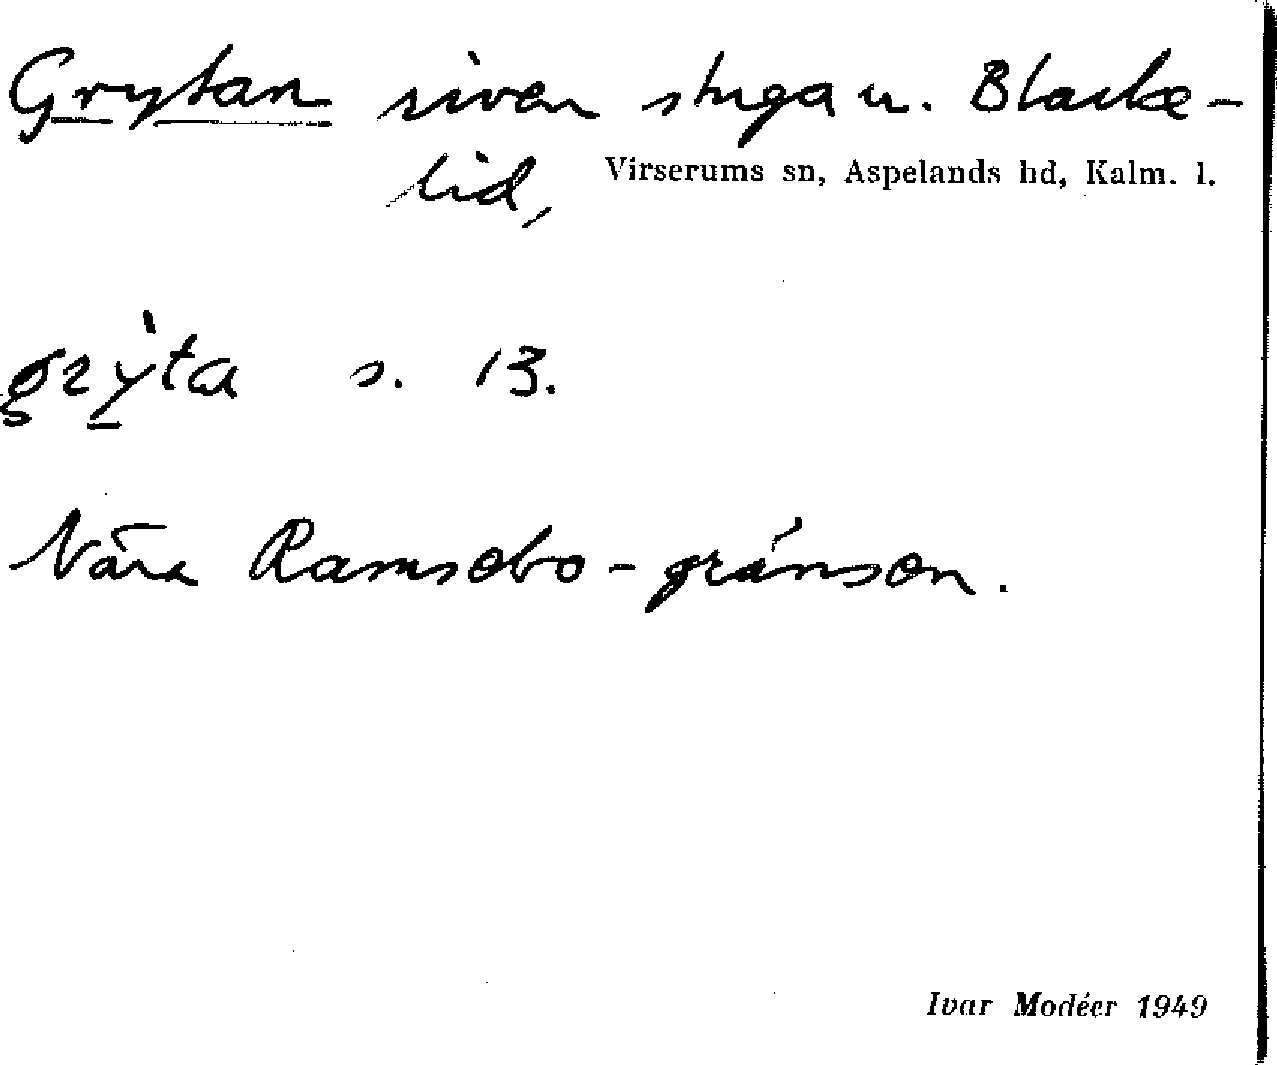 Grytan riven stuga u. Blacke-
lid,
Virserums sn, Aspelands hd, Kalm. l.
grỳta s. 13.
Nära Ramsebo-gränsen.
Ivar Modéer 1949